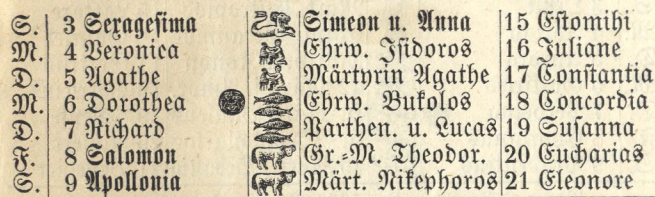 S. 3 Sexagesima Simeon u. Anna 15 Estomihi
M. 4 Veronica Ehrw. Isidoros 16 Juliane
D. 5 Agathe Märtyrin Agathe 17 Constantia
M. 6 Dorothea Ehrw. Bukolos 18 Concordia
D. 7 Richard Parthen. u. Lucas 19 Susanna
F. 8 Salomon Gr.=M. Theodor. 20 Eucharias
S. 9 Apollonia Märt. Nikephoros 21 Eleonore